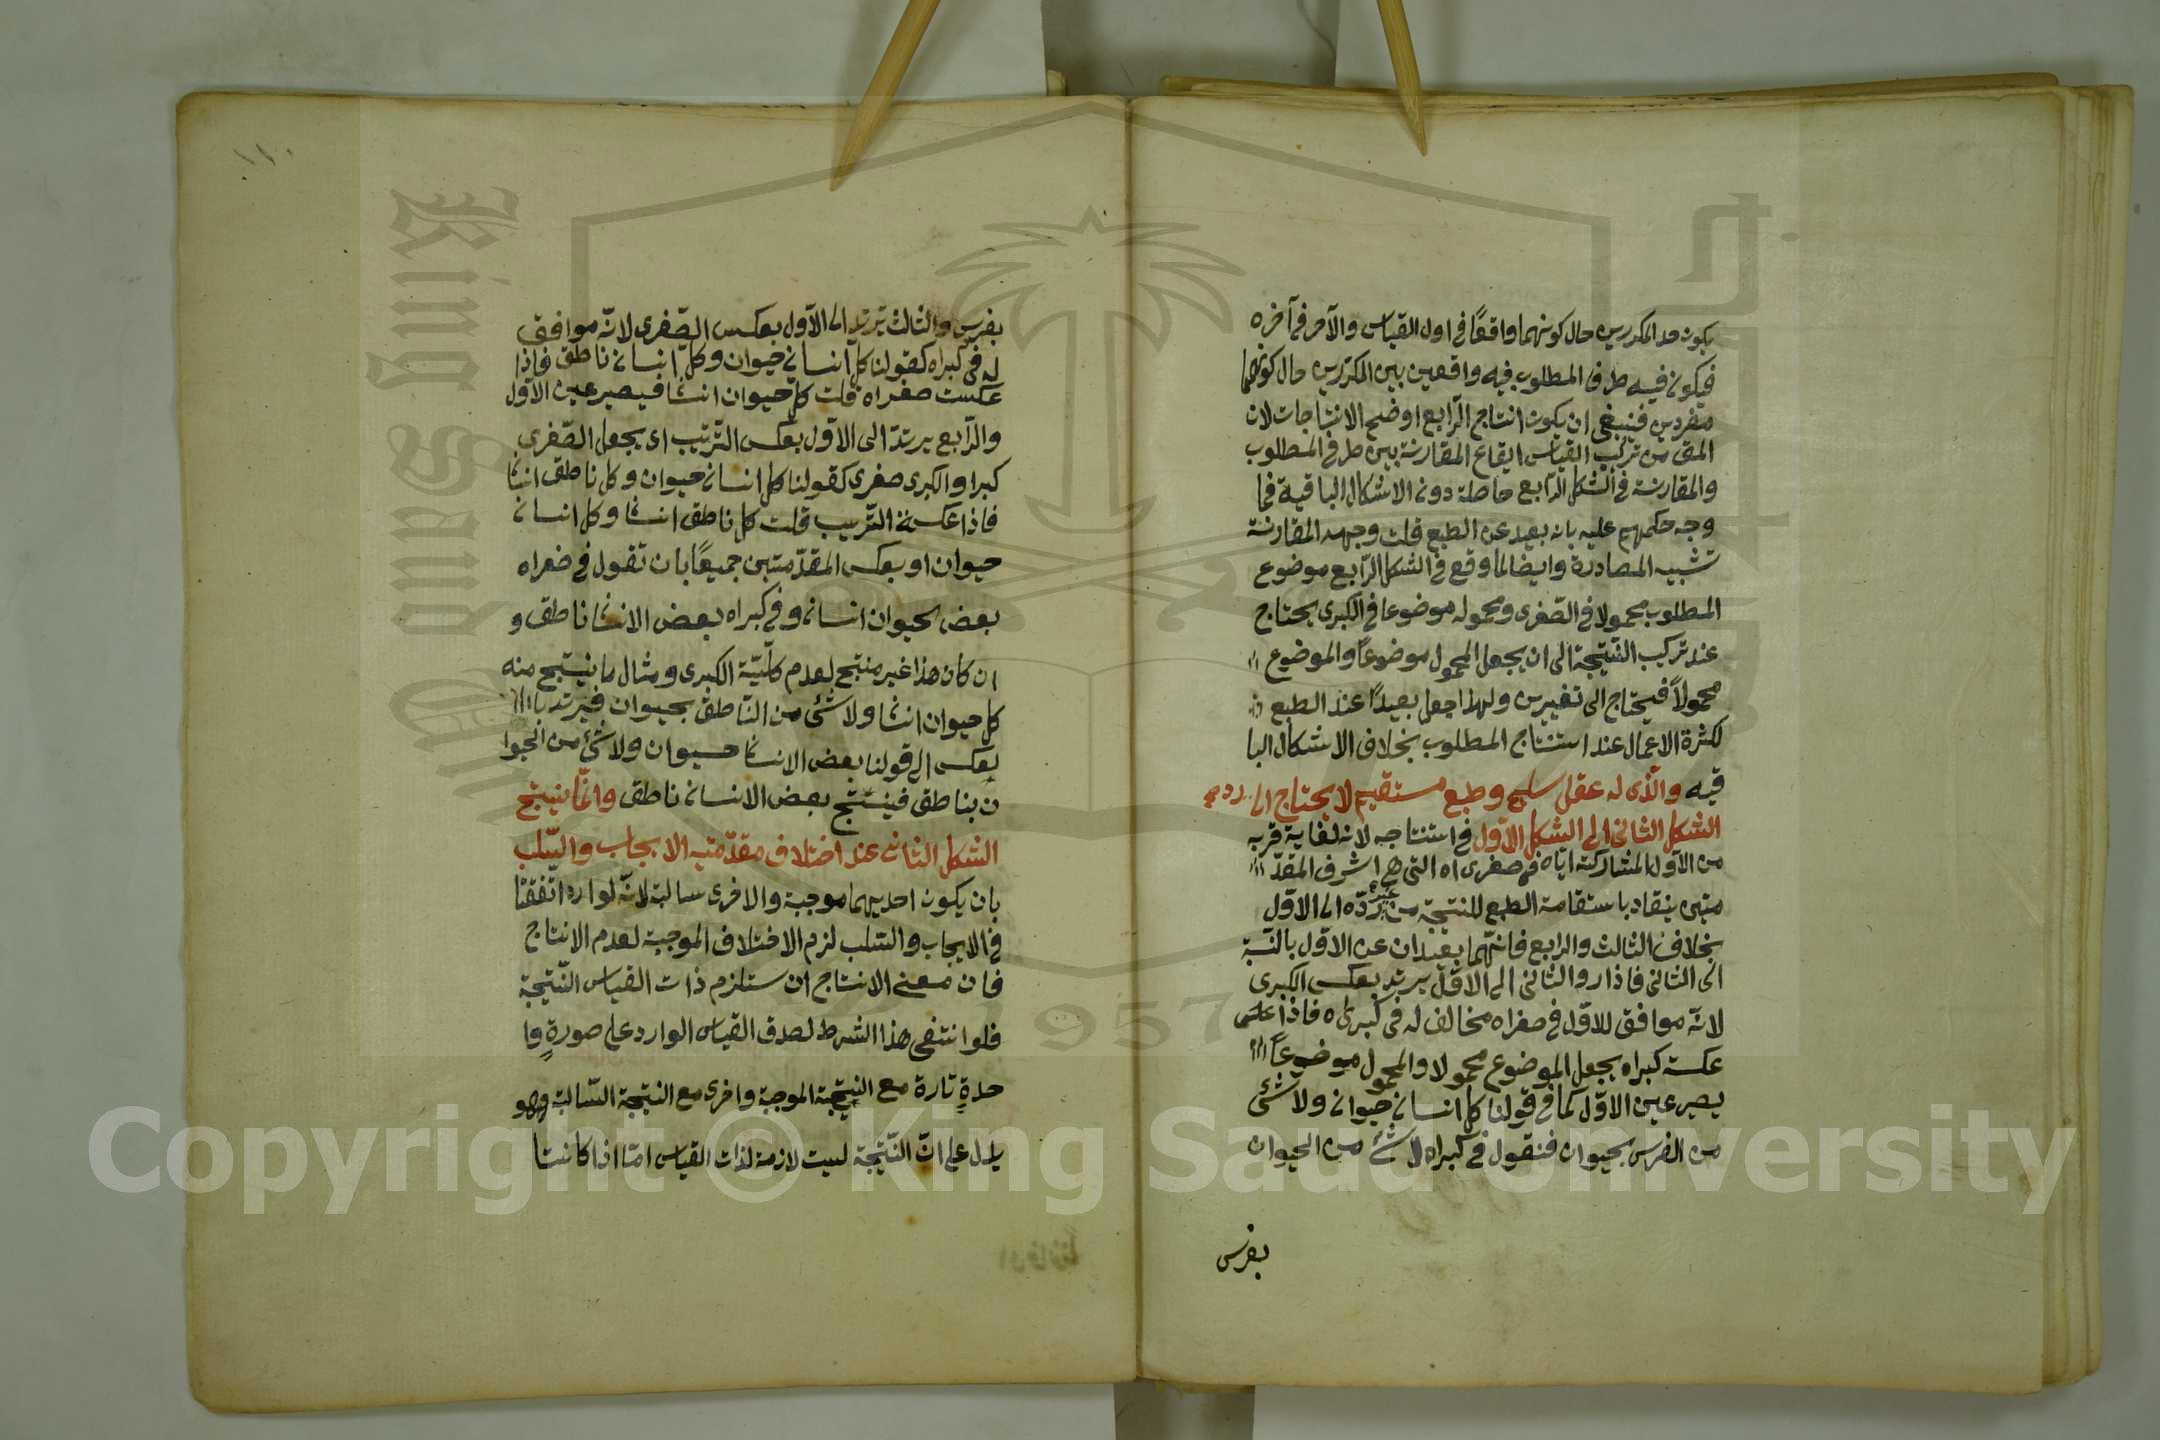 يكون حد المكررين حال كونهما واقعًا في اول القياس والآخر في آخره
فيكون فيه طرفا المطلوب فيه واقعين بين المكررين حال كونهما
منفردين فينبغي ان يكون انتاج الرّابع اوضح الانتاجات لان
المقص من تركيب القياس ايقاع المقارنة بين طرفي المطلوب
والمقارنة في الشكل الرّابع حاصلة دون الاشكال الباقية فما
وجه حكمهم عليه بانه بعيد عن الطبع قلت وجهه المقارنة
تشبيه المصادرة وايضا لما وقع في الشكل الرّابع موضوع
المطلوب محمولا في الصّغرى ومحموله موضوعا في الكبرى يحتاج
عند تركيب النتيجة الى ان يجعل المحمول موضوعاً والموضوع
محمولاً فيحتاج الى تغييرين ولهذا جعل بعيداً عند الطبع
لكثرة الاعمال عند استنتاج المطلوب بخلاف الاشكال البا
قيه والّذى له عقل سليم وطبع مستقيم لا يحتاج الى رد
الشكل الثانى الى الشكل الاّول في استنتاجه لانه لغاية قربه
من الاّول لمشاركته ايّاه في صغرى اه التى هي اشرف المقدّ
متين ينقاد باستقامة الطبع للنتيجة من غير ردّه الى الاوّل
بخلاف الثالث والرابع فانّهما بعيدان عن الاوّل بالنّسبة
الى الثانى فاذا ر والثانى الى الاوّل يرتد بعكس الكبرى
لانّه موافق للاوّل في صغراه مخالف له في كبراه فاذا
عكسة كبراه بجعل الموضوع محمولا والمحمول موضوعاً
يصير عين الاوّل كما في قولنا كل انسان حيوان ولا شئ
من الفرس بحيوان فنقول في كبراه لا شئ من الحيوان
بفرس
١١٠
بفرس والثالث يرتد الى الاّول بعكس الصّغرى لانّه موافق
له في كبراه كقولنا كل انسان حيوان وكلّ انسان ناطق فاذا
عكست صغراه قلت كلّ حيوان انسان فيصير عين الاوّل
والرّابع يرتدّ الى الاوّل بعكس التّرتيب اى يجعل الصّغرى
كبرا والكبرى صغرى كقولنا كل انسان حيوان وكل ناطق انسان
فاذا عكسة التّرتيب قلت كل ناطق انسان وكل انسان
حيوان او بعكس المقدّمتين جميعًا بان تقول في صغراه
بعض الحيوان انسان وفي كبراه بعض الانسان ناطق و
ان كان هذا غير منتج لعدم كليّة الكبرى ومثال ما ينتج منه
كل حيوان انسان ولا شئ من النّاطق بحيوان فيرتد با
بعكس الى قولنا بعض الانسان حيوان ولا شئ من الحيوا
ن بناطق فينتج بعض الانسان ناطق وانّما ينتج
الشكل الثانى عند اختلاف مقدّمتيه الايجاب والسّلب
بان يكون احديهما موجبة والاخرى سالبة لانّه لو اتفقتا
في الايجاب والسّلب لزم الاختلاف الموجبة لعدم الانتاج
فان معنى الانتاج ان ستلزم ذات القياس النّتيجة
فلو انتفى هذا الشرط لصدق القياس الوارد على صورةٍ وا
حدةٍ تارة مع النتيجة الموجبة واخرى مع النتيجة السّالبة وهو
يدل على انّ النّتيجة ليست لازمة لذات القياس امّا اذا كانتا
Copyright © King Saud University
King Saud University
1957